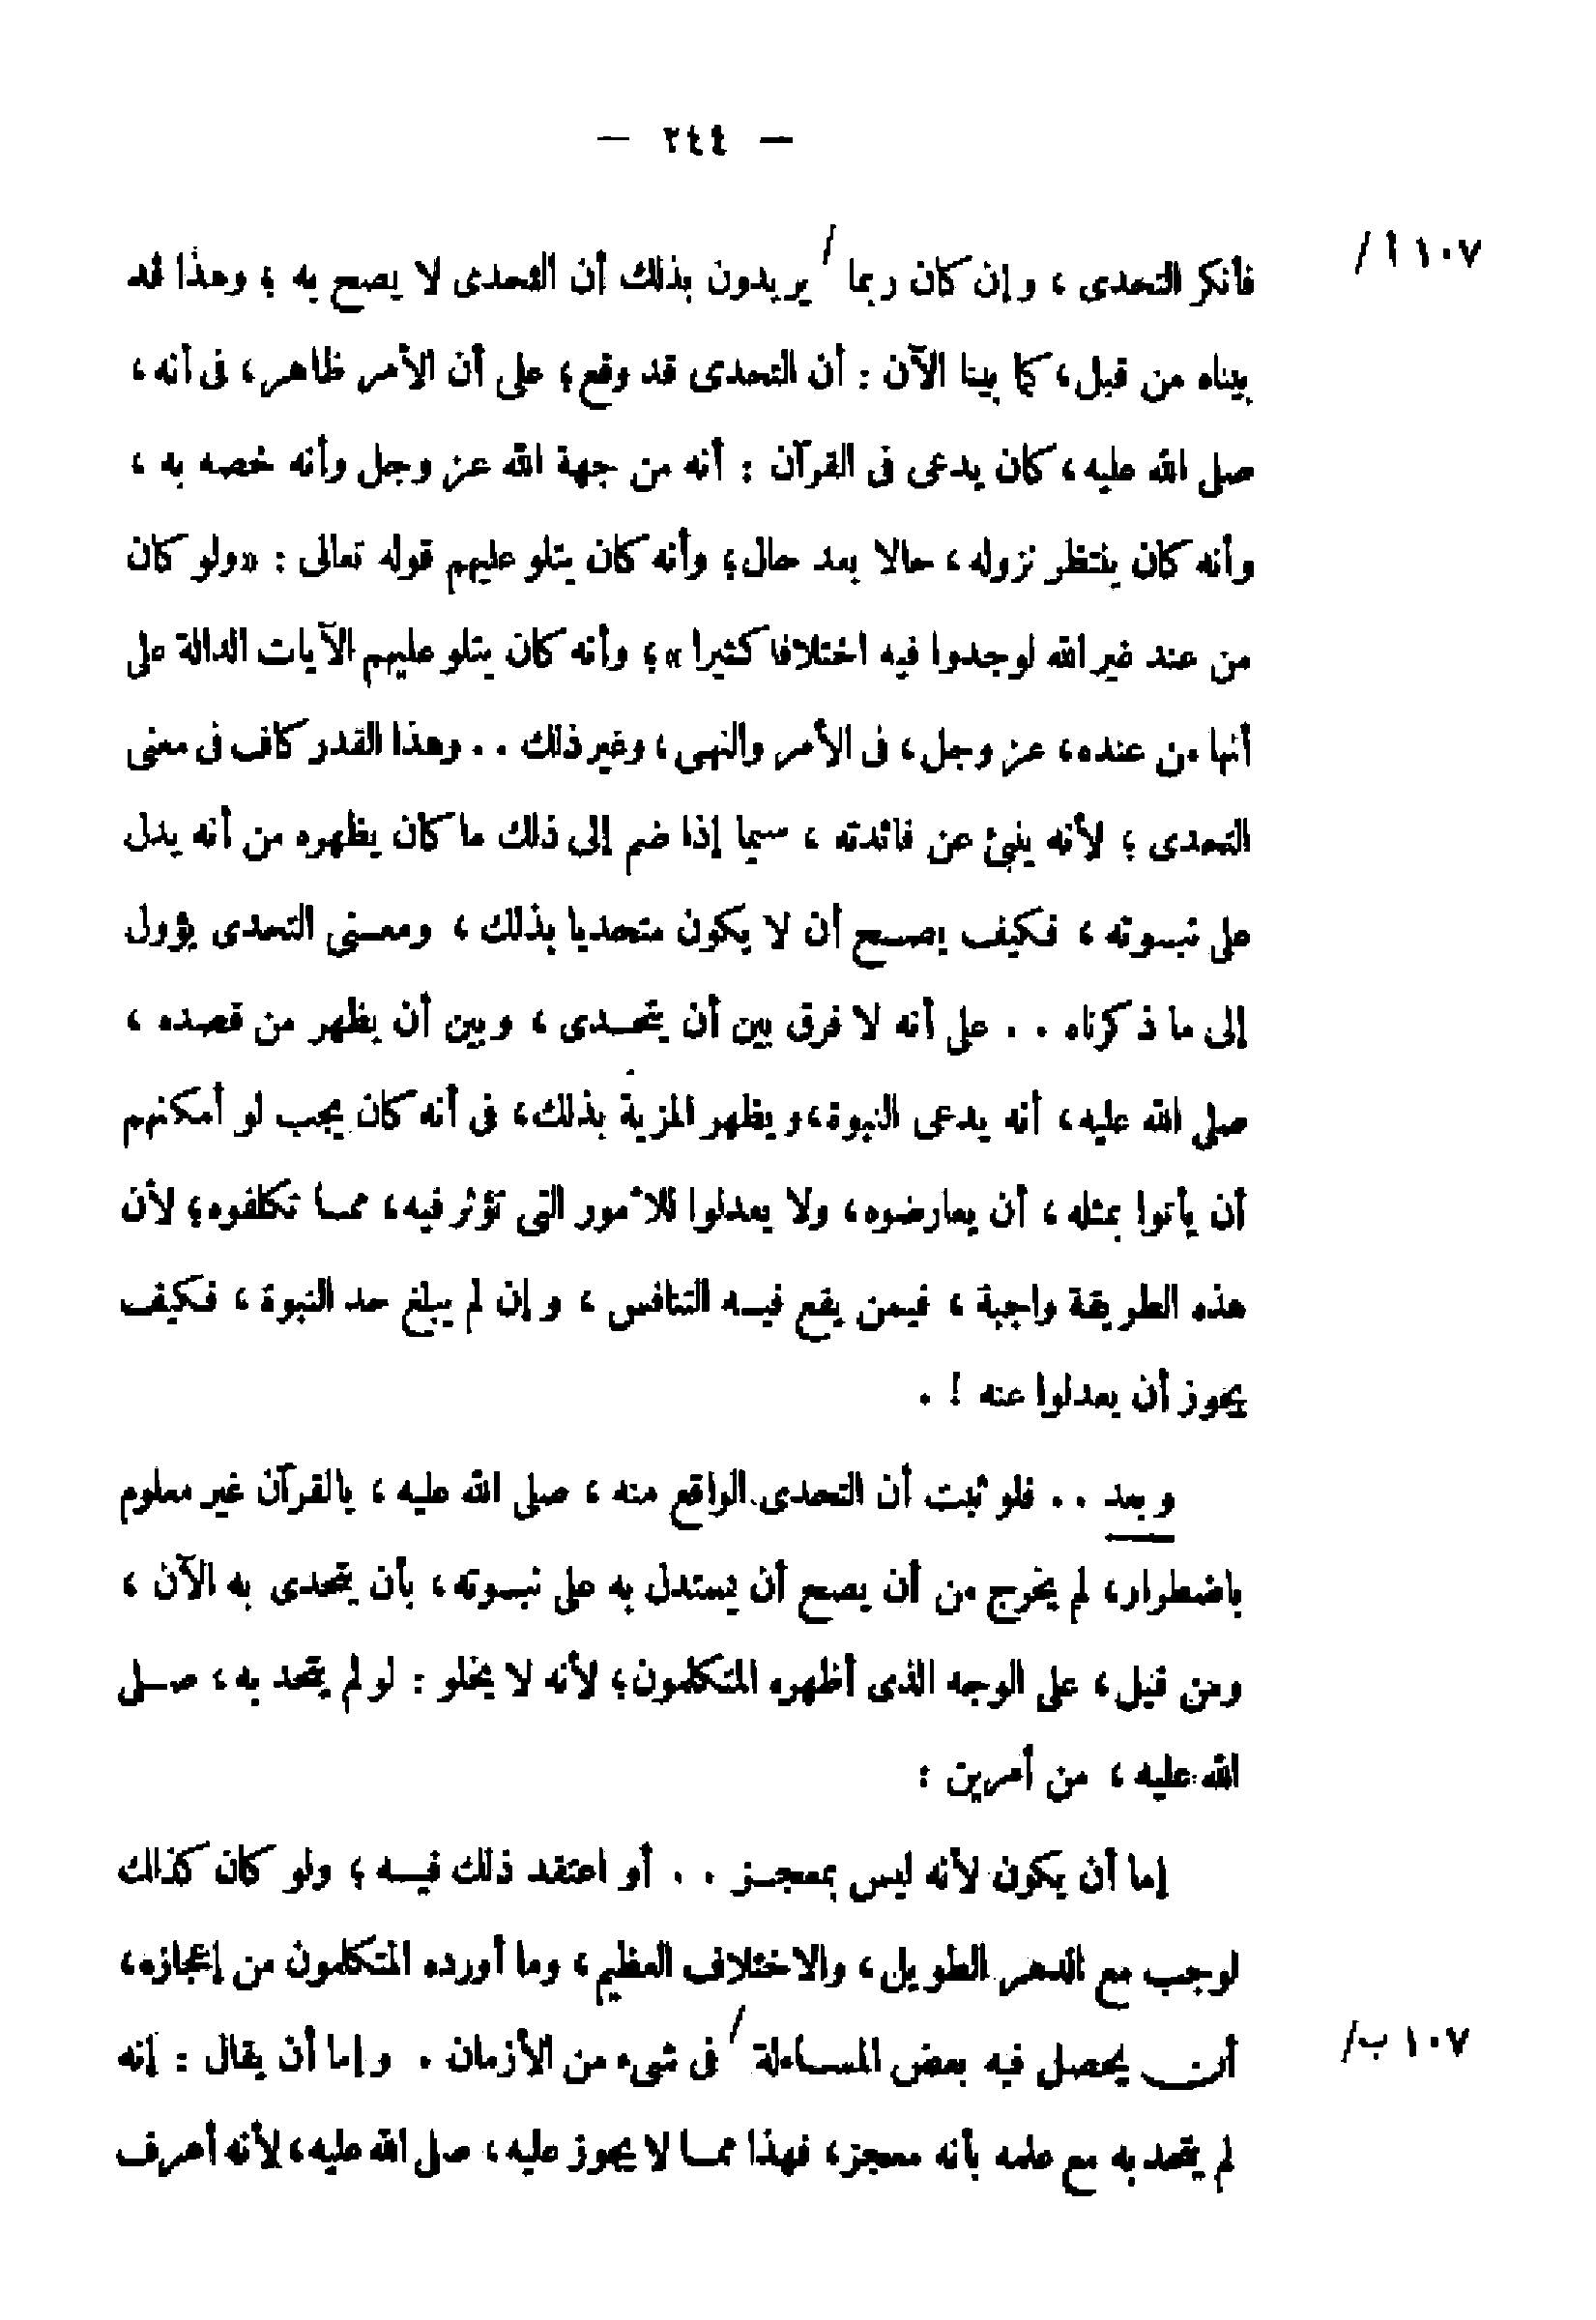 — ٢٤٤ —
١٠٧ أ /
فأنكر التحدى ، وإن كان ربما / يريدون بذلك أن التحدى لا يصح به ؛ وهذا قد
بيناه من قبل ، كما بينا الآن : أن التحدى قد وقع ؛ على أن الأمر ظاهر ، فى أنه ،
صلى الله عليه ، كان يدعى فى القرآن : أنه من جهة الله عز وجل وأنه خصه به ،
وأنه كان ينتظر نزوله ، حالا بعد حال ؛ وأنه كان يتلو عليهم قوله تعالى : «ولو كان
من عند غير الله لوجدوا فيه اختلافا كثيرا » ؛ وأنه كان يتلو عليهم الآيات الدالة على
أنها من عنده ، عز وجل ، فى الأمر والنهى ، وغير ذلك . . وهذا القدر كاف فى معنى
التحدى ؛ لأنه ينبئ عن فائدته ، سيما إذا ضم إلى ذلك ما كان يظهره من أنه يدل
على نبوته ، فكيف يصح أن لا يكون متحديا بذلك ، ومعنى التحدى يؤول
إلى ما ذكرناه . . على أنه لا فرق بين أن يتحدى ، وبين أن يظهر من قصده ،
صلى الله عليه ، أنه يدعى النبوة ، ويظهر المزية بذلك ، فى أنه كان يجب لو أمكنهم
أن يأتوا بمثله ، أن يعارضوه ، ولا يعدلوا للأمور التى تؤثر فيه ، مما تكلفوه ؛ لأن
هذه الطريقة واجبة ، فيمن يقع فيه التنافس ، وإن لم يبلغ حد النبوة ، فكيف
يجوز أن يعدلوا عنه ! .
وبعد . . فلو ثبت أن التحدى الواقع منه ، صلى الله عليه ، بالقرآن غير معلوم
باضطرار ، لم يخرج من أن يصح أن يستدل به على نبوته ، بأن يتحدى به الآن ،
ومن قبل ، على الوجه الذى أظهره المتكلمون ؛ لأنه لا يخلو : لو لم يتحد به ، صلى
الله عليه ، من أمرين :
إما أن يكون لأنه ليس بمعجز . . أو اعتقد ذلك فيه ؛ ولو كان كذلك
لوجب مع الدهر الطويل ، والاختلاف العظيم ، وما أورده المتكلمون من إعجازه ،
١٠٧ ب /
أن يحصل فيه بعض المساءلة / فى شىء من الأزمان . وإما أن يقال : إنه
لم يتحد به مع علمه بأنه معجز ، فهذا مما لا يجوز عليه ، صلى الله عليه ، لأنه أعرف